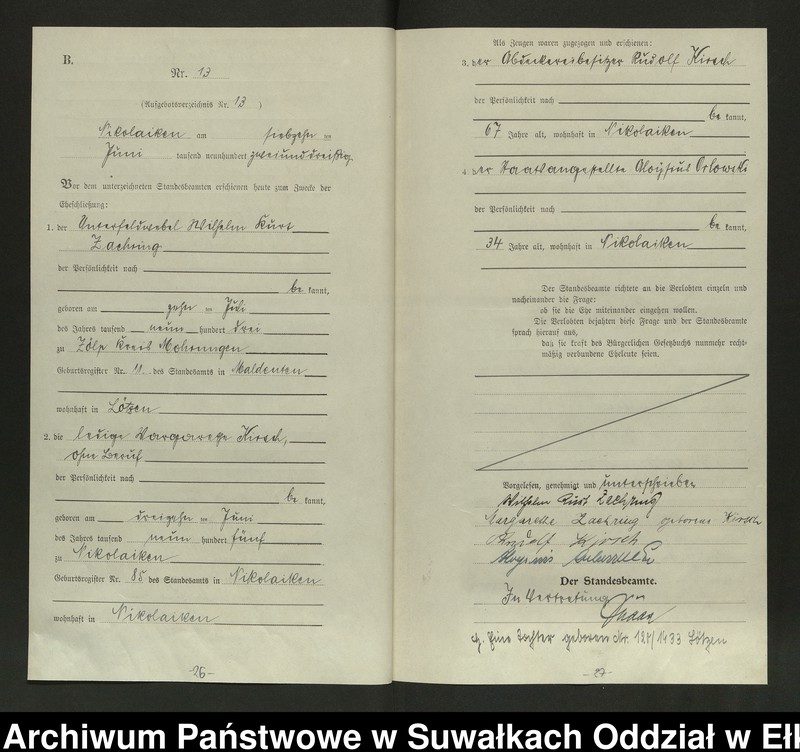 B.
Nr. 13
(Aufgebotsverzeichnis Nr. 13 )
Nikolaiken am siebzehnten
Juni tausend neunhundert zweiunddreißig
Vor dem unterzeichneten Standesbeamten erschienen heute zum Zwecke der
Eheschließung:
1. der Unterfeldwebel Wilhelm Kurt
Zachring
der Persönlichkeit nach
be kannt,
geboren am zehnten Juli
des Jahres tausend neun hundert drei
zu Zölp Kreis Mohrungen
Geburtsregister Nr. 11. des Standesamts in Maldeuten
wohnhaft in Lötzen
2. die ledige Margarete Kirsch,
ohne Beruf
der Persönlichkeit nach
be kannt,
geboren am dreizehnten Juni
des Jahres tausend neun hundert fünf
zu Nikolaiken
Geburtsregister Nr. 85 des Standesamts in Nikolaiken
wohnhaft in Nikolaiken
-26-
Als Zeugen waren zugezogen und erschienen:
3. der Rudolf Kirsch
der Persönlichkeit nach
be kannt,
67 Jahre alt, wohnhaft in Nikolaiken
4. der Staatsangestellte Aloysius Orlowski
der Persönlichkeit nach
be kannt,
34 Jahre alt, wohnhaft in Nikolaiken
Der Standesbeamte richtete an die Verlobten einzeln und
nacheinander die Frage:
ob sie die Ehe miteinander eingehen wollen.
Die Verlobten bejahten diese Frage und der Standesbeamte
sprach hierauf aus,
daß sie kraft des Bürgerlichen Gesetzbuchs nunmehr recht-
mäßig verbundene Eheleute seien.
Vorgelesen, genehmigt und unterschrieben
Wilhelm Kurt Zachring
Margarete Zachring geborene Kirsch
Rudolf Kirsch
Aloysius Orlowski
Der Standesbeamte.
In Vertretung
Eine Tochter geboren Nr. 124/1933 Lötzen
-27-
Archiwum Państwowe w Suwałkach Oddział w Eł